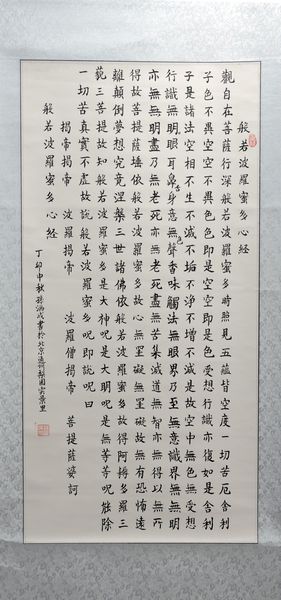 般若波羅蜜多心經
觀自在菩薩行深般若波羅蜜多時照見五蘊皆空度一切苦厄舍利
子色不異空空不異色色即是空空即是色受想行識亦復如是舍利
子是諸法空相不生不滅不垢不淨不增不減是故空中無色無受想
行識無眼耳鼻舌身意無色聲香味觸法無眼界乃至無意識界無無明
亦無無明盡乃無老死亦無老死盡無苦集滅道無智亦無得以無所
得故菩提薩埵依般若波羅蜜多故心無罣礙無罣礙故無有恐怖遠
離顛倒夢想究竟涅槃三世諸佛依般若波羅蜜多故得阿耨多羅三
藐三菩提故知般若波羅蜜多是大神呪是大明呪是無等等呪能除
一切苦真實不虛故說般若波羅蜜多呪即說呪曰
揭帝揭帝 波羅揭帝 波羅僧揭帝 菩提薩婆訶
般若波羅蜜多心經
丁卯中秋孫 書於北京通州梨園云景里